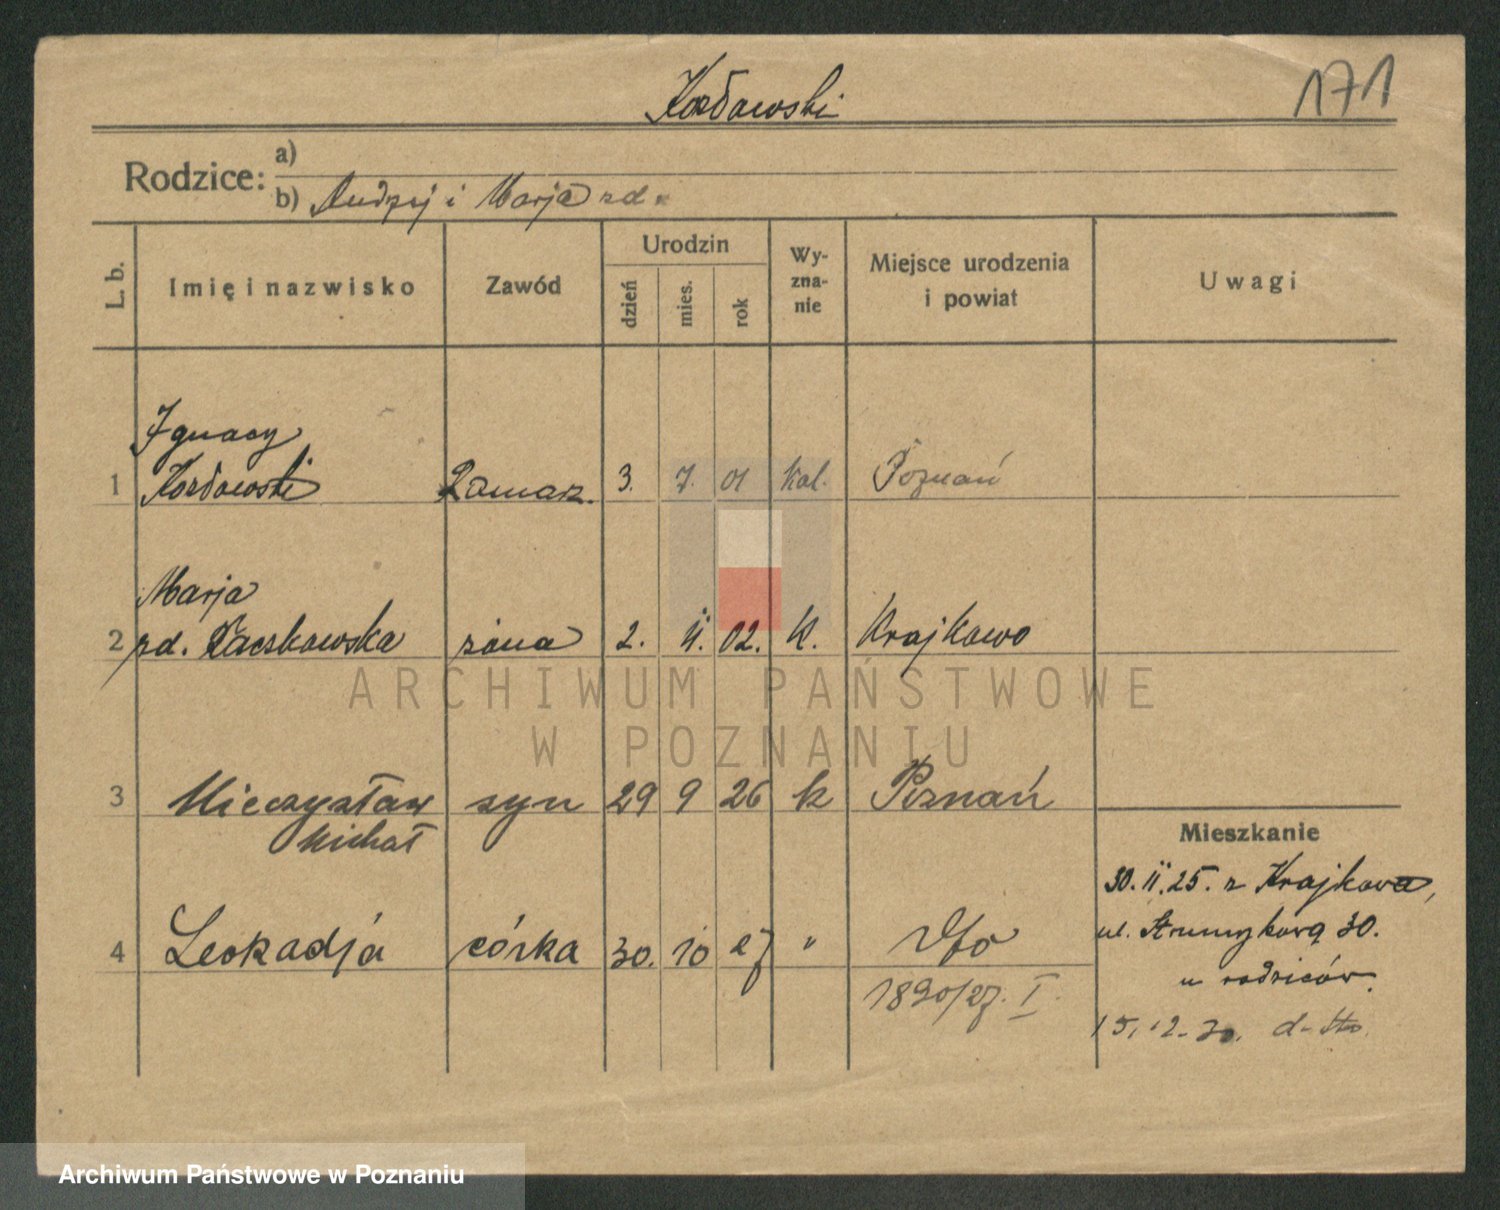 171
Kozłowski
Rodzice: a)
b) Andrzej i Marja zd.
L. b. Imię i nazwisko Zawód Urodzin dzień mies. rok Wyznanie Miejsce urodzenia i powiat Uwagi
Ignacy
1 Kozłowski 3. 7. 01 kat. Poznań
Marja
2 zd. Kaczkowska żona 2. 11. 02. K. Krajkowo
3 Mieczysław syn 29 9 26 k Poznań
Michał
Mieszkanie
30. 11. 25. z Krajkowa,
4 Leokadja córka 30. 10 27 " dto
ul. 30.
u rodziców.
1890/27. I.
15.12.30. d-tto.
ARCHIWUM PAŃSTWOWE
W POZNANIU
Archiwum Państwowe w Poznaniu